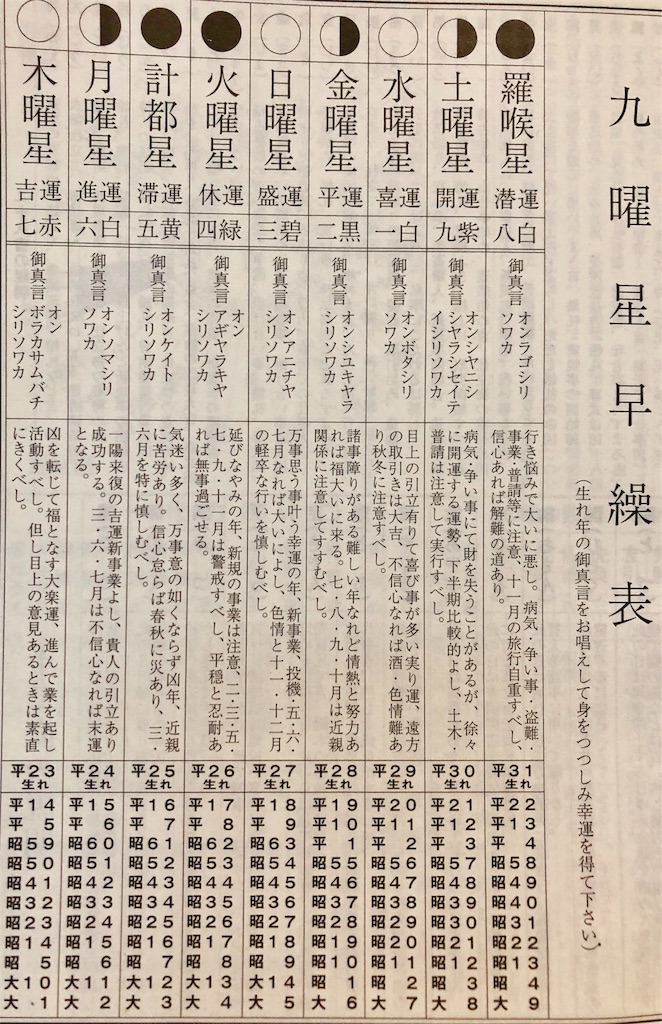 九曜星早繰表
（生れ年の御真言をお唱えして身をつつしみ幸運を得て下さい）
羅喉星
運潜
八白
御真言
オンラゴシリ
ソワカ
行き悩みで大いに悪し。病気・争い事・盗難・
事業・普請等に注意、十一月の旅行自重すべし、
信心あれば解難の道あり。
平31
生れ
平22
平13
平4
昭58
昭49
昭40
昭31
昭22
昭13
昭4
大9
土曜星
運開
九紫
御真言
オンシヤニシ
シヤラシセイテ
イシリソワカ
病気・争い事にて財を失うことがあるが、徐々
に開運する運勢、下半期比較的よし、土木・
普請は注意して実行すべし。
平30
生れ
平21
平12
平3
昭57
昭48
昭39
昭30
昭21
昭12
昭3
大8
水曜星
運喜
一白
御真言
オンボタシリ
ソワカ
目上の引立有りて喜び事が多い実り運、遠方
の取引きは大吉、不信心なれば酒・色情難あ
り秋冬に注意すべし。
平29
生れ
平20
平11
平2
昭56
昭47
昭38
昭29
昭20
昭11
昭2
大7
金曜星
運平
二黒
御真言
オンシユキヤラ
シリソワカ
諸事障りがある難しい年なれど情熱と努力あ
れば福大いに来る。七・八・九・十月は近親
関係に注意してすすむべし。
平28
生れ
平19
平10
平1
昭55
昭46
昭37
昭28
昭19
昭10
昭1
大6
日曜星
運盛
三碧
御真言
オンアニチヤ
シリソワカ
万事思う事叶う幸運の年、新事業、投機・五・六・
七月なれば大いによし、色情と十一・十二月
の軽卒な行いを慎しむべし。
平27
生れ
平18
平9
昭63
昭54
昭45
昭36
昭27
昭18
昭9
大14
大5
火曜星
運休
四緑
御真言
オン
アギヤラキヤ
シリソワカ
延びなやみの年、新規の事業は注意、二・三・五・
七・九・十一月は警戒すべし、平穏と忍耐あ
れば無事過ごせる。
平26
生れ
平17
平8
昭62
昭53
昭44
昭35
昭26
昭17
昭8
大13
大4
計都星
運滞
五黄
御真言
オンケイト
シリソワカ
気迷い多く、万事意の如くならず凶年、近親
に苦労あり。信心怠らば春秋に災あり、三・
六月を特に慎しむべし。
平25
生れ
平16
平7
昭61
昭52
昭43
昭34
昭25
昭16
昭7
大12
大3
月曜星
運進
六白
御真言
オンソマシリ
ソワカ
一陽来復の吉運新事業よし、貴人の引立あり
成功する。三・六・七月は不信心なれば末運
となる。
平24
生れ
平15
平6
昭60
昭51
昭42
昭33
昭24
昭15
昭6
大11
大2
木曜星
運吉
七赤
御真言
オン
ボラカサムバチ
シリソワカ
凶を転じて福となす大楽運、進んで業を起し
活動すべし。但し目上の意見あるときは素直
にきくべし。
平23
生れ
平14
平5
昭59
昭50
昭41
昭32
昭23
昭14
昭5
大10
大1